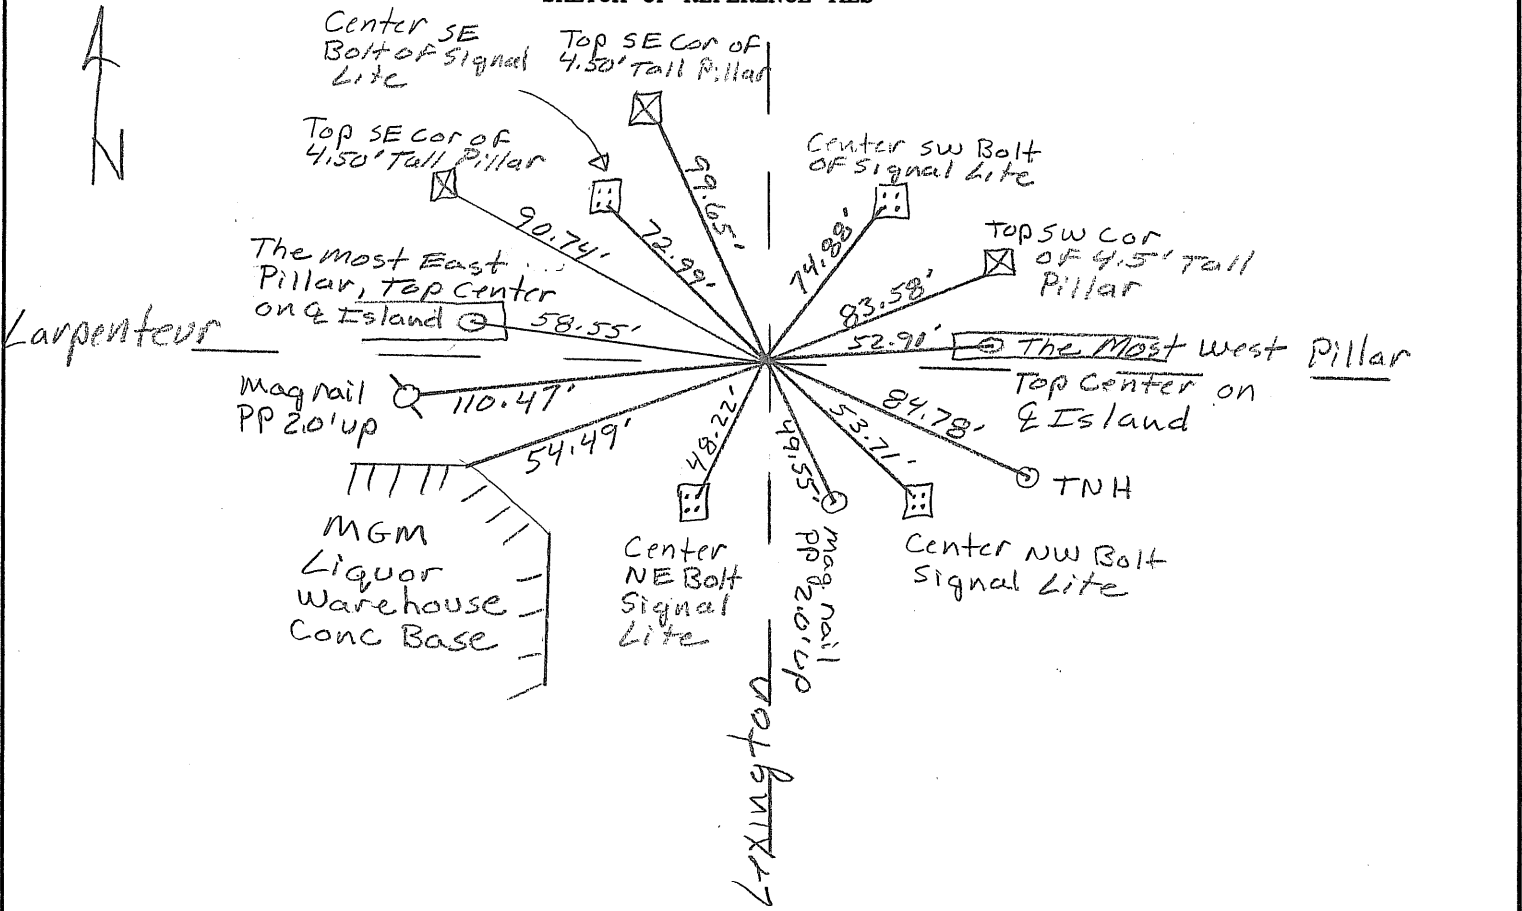 SKETCH OF REFERENCE TIES
N
Center SE
Bolt of Signal
Lite
Top SE Cor of
4.50' Tall Pillar
Top SE Cor of
4.50' Tall Pillar
Center SW Bolt
of Signal Lite
99.65'
90.74'
72.99'
74.88'
Top SW Cor
of 4.5' Tall
Pillar
83.58'
The most East
Pillar, Top Center
on ℄ Island
58.55'
52.91'
The Most West Pillar
Top Center on
℄ Island
Larpenteur
Mag nail
PP 2.0' up
110.47'
54.49'
48.22'
49.55'
53.71'
84.78'
TNH
MGM
Liquor
Warehouse
Conc Base
Center
NE Bolt
Signal
Lite
mag nail
PP 2.0' up
Center NW Bolt
Signal Lite
Lexington